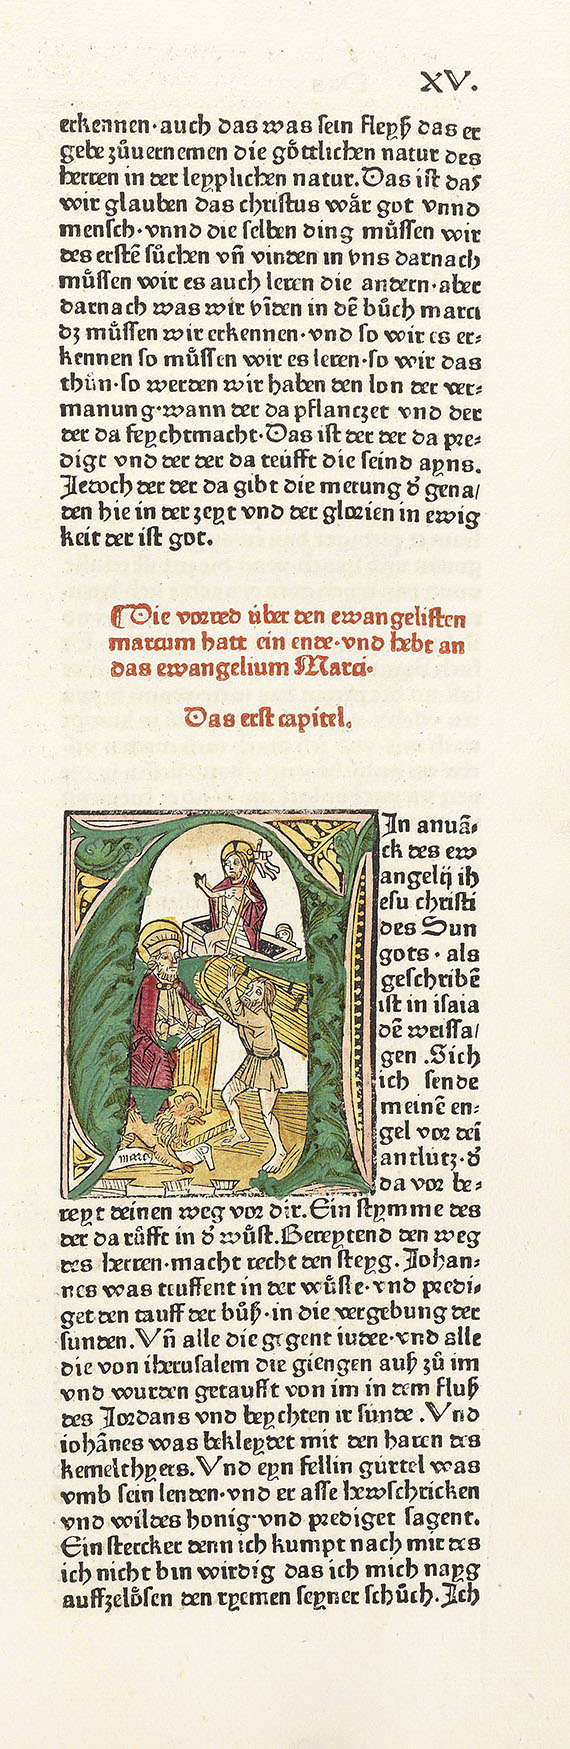 XV.
erkennen·auch das was sein fleyß das er
gebe zůuernemen die gôttlichen natur des
herren in der leyplichen natur.Das ist das
wir glauben das christus wår got vnnd
mensch·vnnd die selben ding mů̈ssen wir
des erstē sůchen vñ vinden in vns darnach
mů̈ssen wir es auch leren die andern·aber
darnach was wir vīden in dē bůch marci
dz mů̈ssen wir erkennen·vnd so wir es er⸗
kennen so mů̈ssen wir es leren·so wir das
thün·so werden wir haben den lon der ver⸗
manung·wann der da pflanczet vnd der
der da feychtmacht·Das ist der der da pre⸗
digt vnd der der da teüfft die seind ayns.
Jedoch der der da gibt die merung d̕ gena/
den hie in der zeyt vnd der glorien in ewig
keit der ist got.
¶Die vorred über den ewangelisten
marcum hatt ein ende·vnd hebt an
das ewangelium Marci·
Das erst capitel.
Jn anuā⸗
ck des ew
angelij ih
esu christi
des Sun
gots·als
geschribē
ist in isaia
dē weissa/
gen .Sich
ich sende
meinē en⸗
gel vor deī
antlütz·d̕
da vor be⸗
marc
reyt deinen weg vor dir.Ein stymme des
der da rů̈fft in d̕ wů̈st.Bereytend den weg
des herren·macht recht den steyg.Johan⸗
nes was teuffent in der wů̈ste·vnd predi⸗
get den tauff der bůß·in die vergebung der
sunden.Vñ alle die gegent iudee·vnd alle
die von iherusalem die giengen auß zů im
vnd wurden getaufft von im in dem fluß
des Jordans vnd beychten ir sunde .Vnd
iohānes was bekleydet mit den haren des
kemelthyers.Vnd eyn fellin gürtel was
vmb sein lenden·vnd er asse hewschricken
vnd wildes honig·vnd prediget sagent.
Ein stercker denn ich kumpt nach mir des
ich nicht bin wirdig das ich mich nayg
auffzelôsen den ryemen seyner schůch.Jch